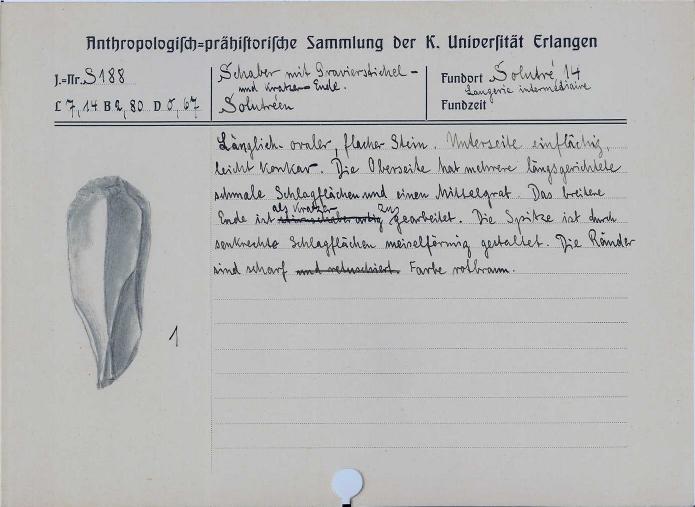 Anthropologisch=prähistorische Sammlung der K. Universität Erlangen
J.=Nr. S188
L 7,14 B 2,80 D 0,67
Schaber mit Gravierstichel-
und Kratzer-Ende.
Solutréen
Fundort Solutré 14
Laugerie intermédiaire
Fundzeit
Länglich-ovaler, flacher Stein. Unterseite einflächig,
leicht konkav. Die Oberseite hat mehrere längsgerichtete
schmale Schlagflächen und einen Mittelgrat. Das breitere
als Kratzer zu
Ende ist gearbeitet. Die Spitze ist durch
senkrechte Schlagflächen meiselförmig gestaltet. Die Ränder
sind scharf und retuschiert. Farbe rotbraun.
1